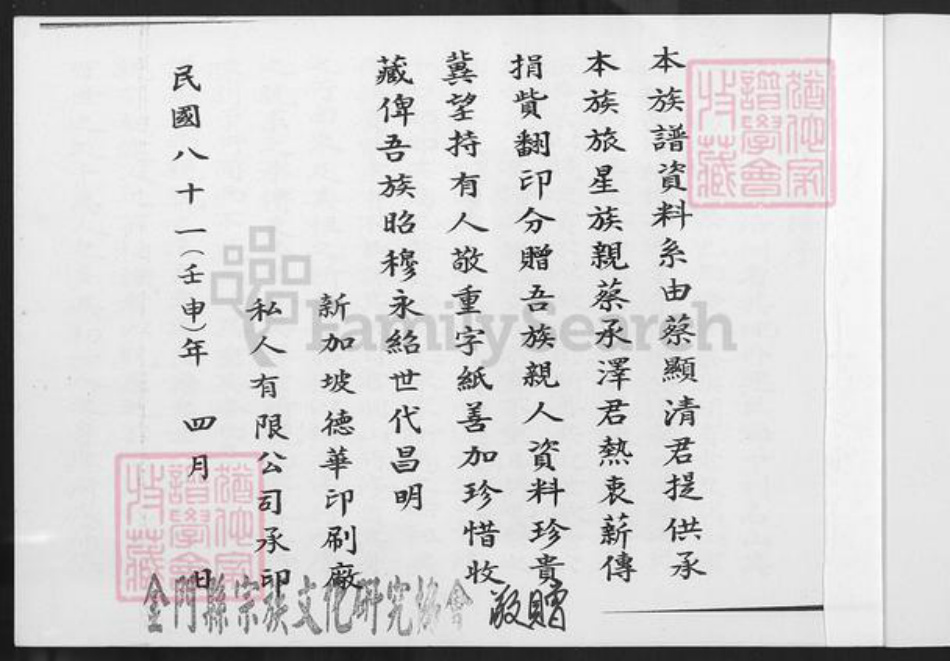 本族譜資料系由蔡顯清君提供承
本族旅星族親蔡承澤君熱衷薪傳
捐貲翻印分贈吾族親人資料珍貴
冀望持有人敬重字紙善加珍惜收
藏俾吾族昭穆永紹世代昌明
新加坡德華印刷廠
私人有限公司承印
民國八十一(壬申)年 四月 日
金門縣宗族文化研究協會 敬贈
FamilySearch